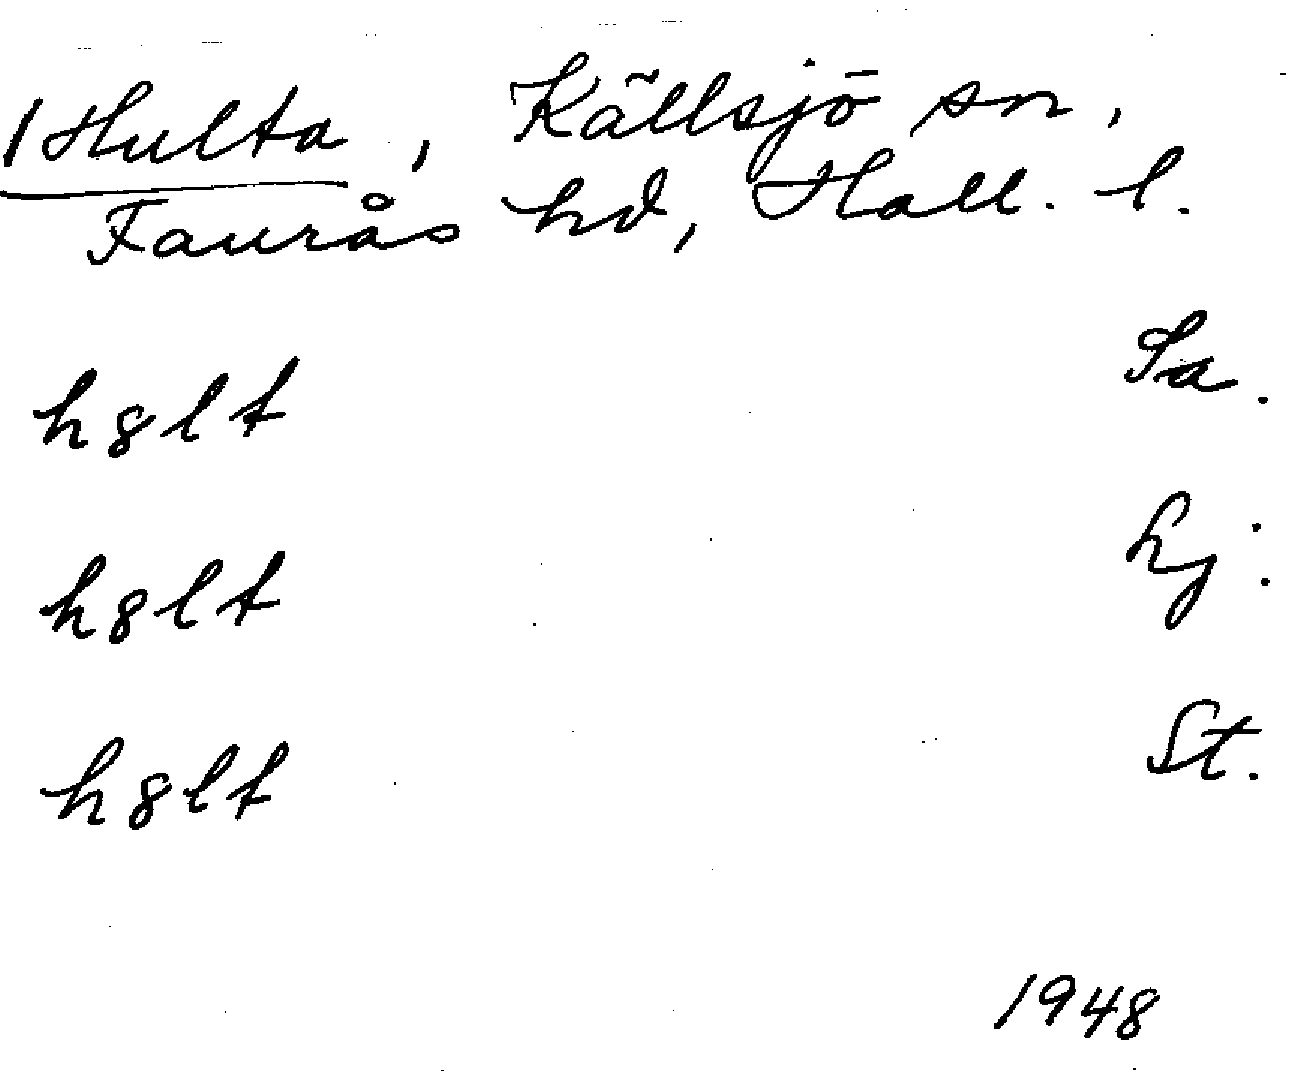 1 Hulta, Källsjö sn,
Faurås hd, Hall. l.
h8lt Sa.
h8lt Lj:
h8lt St.
1948